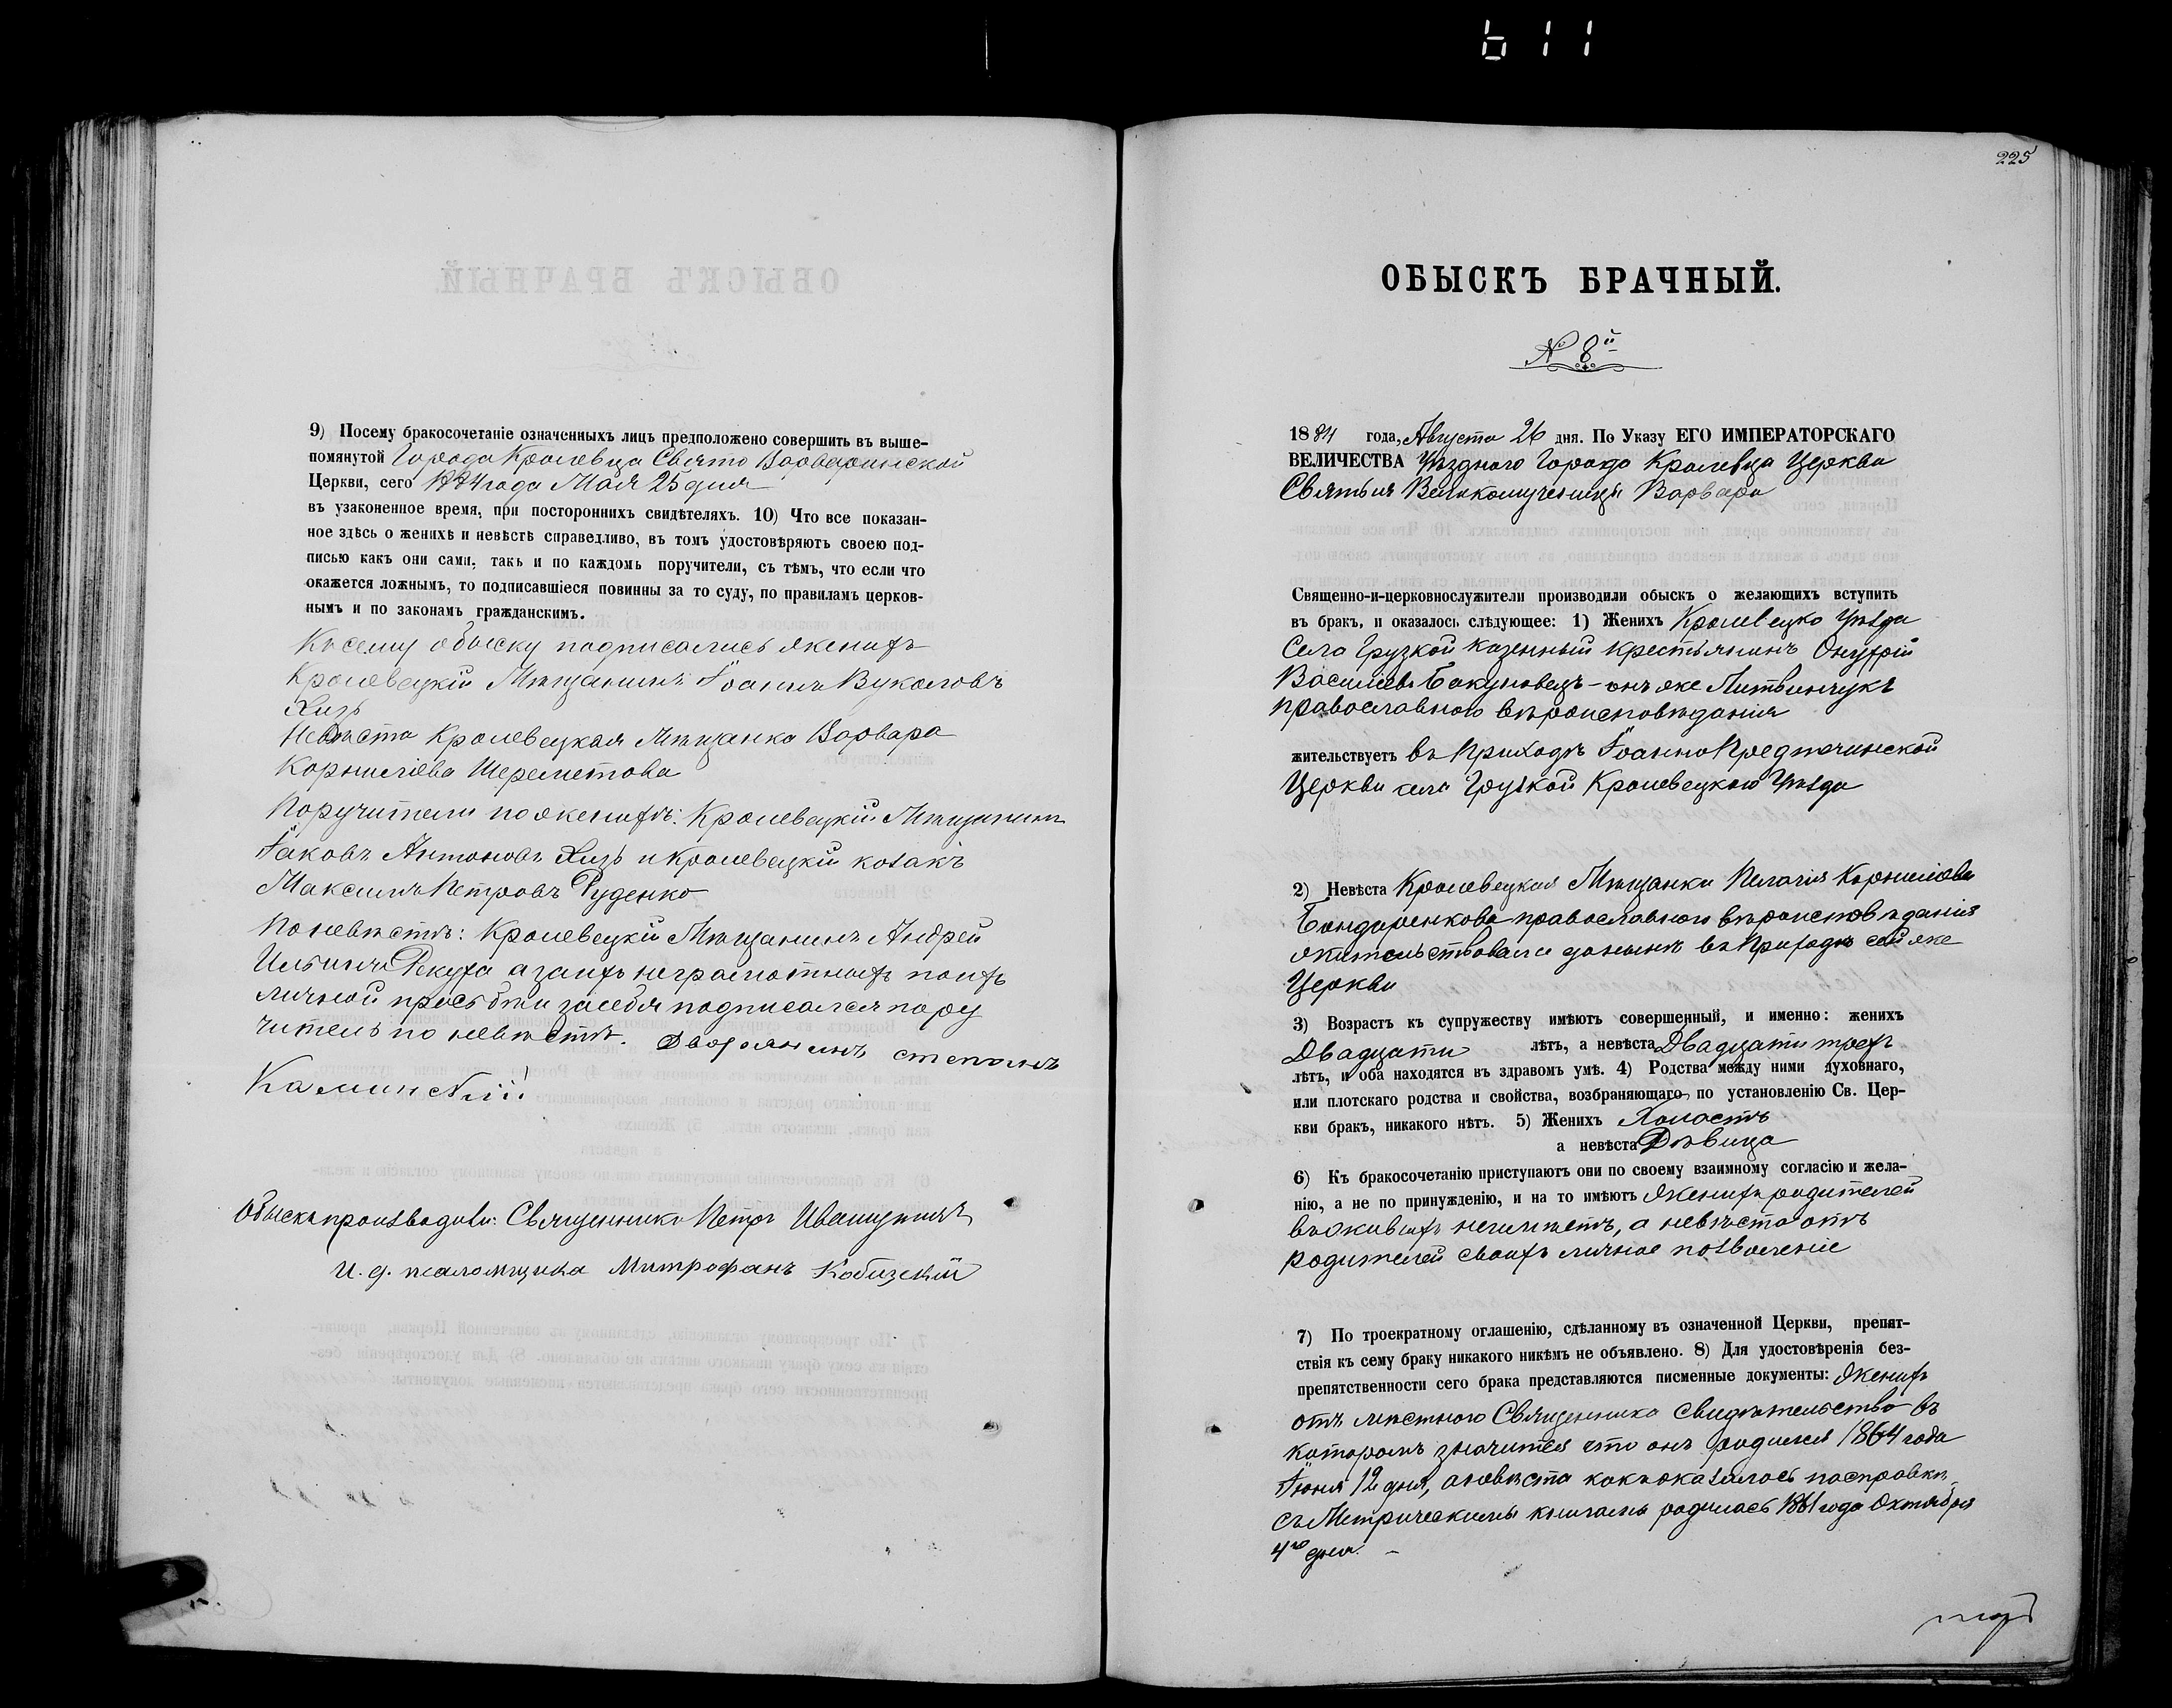 9) Посему бракосочетаніе означенныхъ лицъ предположено совершить въ выше-
помянутой Города Кролевца Свято Варваринской
Церкви, сего 1884 года Мая 25 дня
въ узаконенное время, при постороннихъ свидѣтеляхъ. 10) Что все показан-
ное здѣсь о женихѣ и невѣстѣ справедливо, въ томъ удостовѣряютъ своею под-
писью какъ они сами, такъ и по каждомъ поручители, съ тѣмъ, что если что
окажется ложнымъ, то подписавшіеся повинны за то суду, по правиламъ церков-
нымъ и по законамъ гражданскимъ.
Къ сему обыску подписались женихъ
Кролевецкій Мѣщанинъ Іоаннъ Вуколовъ
Хизь
Невѣста Кролевецкая Мѣщанка Варвара
Корнилiева Шереметова
Поручители по женихѣ: Кролевецкій Мѣщанинъ
Іаковъ Антоновъ Хизь и Кролевецкій козакъ
Максимъ Петровъ Руденко
По невѣстѣ: Кролевецкій Мѣщанинъ Андрей
Ильинъ Рекуха а за ихъ неграмотность по ихъ
личной прозьбѣ и за себя подписался пору
читель по невѣстѣ. Дворянинъ степанъ
Каминскій
Обыскъ производили: Священникъ Петръ
И. д. псаломщика Митрофанъ Кобизскій
225
ОБЫСКЪ БРАЧНЫЙ.
№ 8й
1884 года, Августа 26 дня. По Указу ЕГО ИМПЕРАТОРСКАГО
ВЕЛИЧЕСТВА Уѣзднаго Города Кролевца Церкви
Святыя Великомученицы Варвары
Священно-и-церковнослужители производили обыскъ о желающихъ вступить
въ бракъ, и оказалось слѣдующее: 1) Женихъ Кролевецко Уѣзда
Села Грузкой казенный крестьянинъ Онуфрій
Василіевъ Бакуновецъ - онъ же Литвинчукъ
православного вѣроисповѣданія
жительствуетъ въ Приходѣ Іоанно Предтечинской
Церкви села Грузкой Кролевецкого Уѣзда
2) Невѣста Кролевецкая Мѣщанка Пелагія Корниліева
Бондаренкова православного вѣроисповѣданія
жительствовала донынѣ въ Приходѣ сей же
Церкви
3) Возрастъ къ супружеству имѣютъ совершенный, и именно: женихъ
Двадцати лѣтъ, а невѣста Двадцати трехъ
лѣтъ, и оба находятся въ здравомъ умѣ. 4) Родства между ними духовнаго,
или плотскаго родства и свойства, возбраняющаго по установленію Св. Цер-
кви бракъ, никакого нѣтъ. 5) Женихъ Холостъ
а невѣста Дѣвица
6) Къ бракосочетанію приступаютъ они по своему взаимному согласію и жела-
нію, а не по принужденію, и на то имѣютъ Женихъ родителей
въ живыхъ неимѣетъ, а невѣста отъ
родителей своихъ личное позволеніе
7) По троекратному оглашенію, сдѣланному въ означенной Церкви, препят-
ствія къ сему браку никакого никѣмъ не объявлено. 8) Для удостовѣренія без-
препятственности сего брака представляются писменные документы: Женихъ
отъ мѣстного Священника свидѣтельство въ
которомъ значится что онъ родился 1864 года
Іюня 12 дня, а невѣста какъ оказалось по справкѣ
съ Метрическими книгами родилась 1861 года Октября
4го дня. -